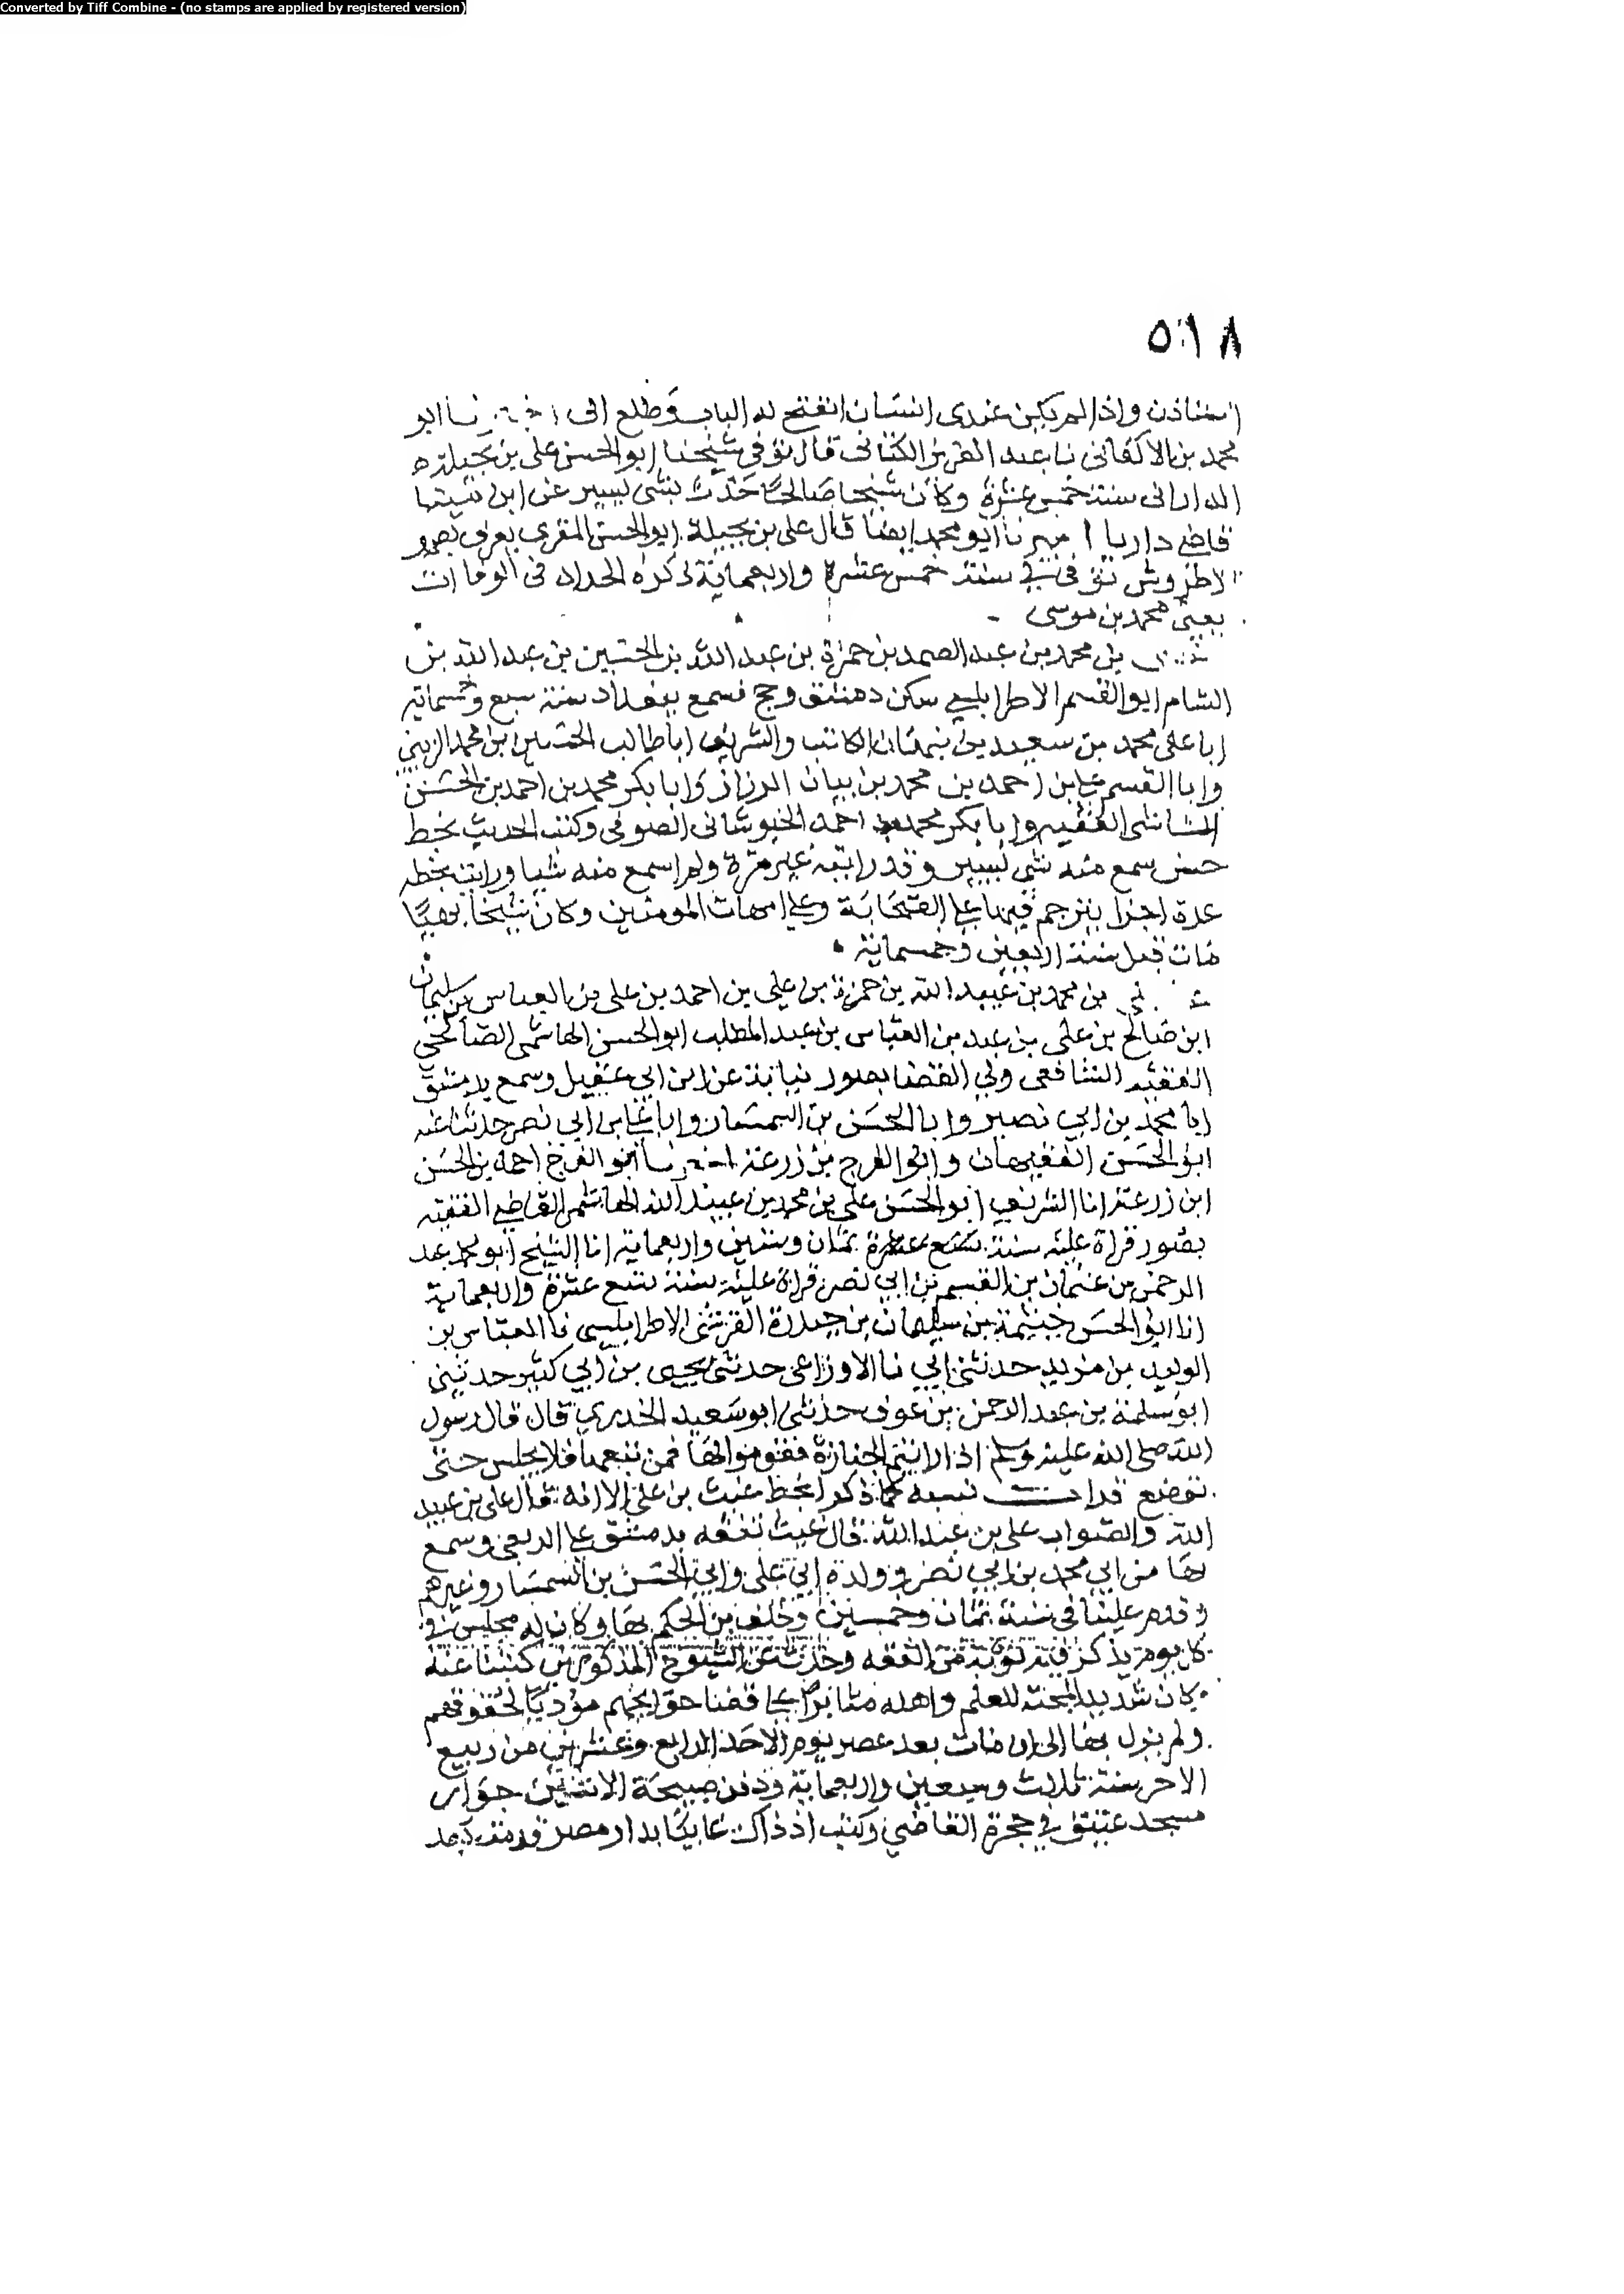 Converted by Tiff Combine - (no stamps are applied by registered version)
٥١٨
استاذن واذا لم يكن عندى انسان انفتح له الباب وطلع الى اخبرنا ابو
محمد بن الاكفانى نا عبد العزيز الكتانى قال توفى شيخنا ابو الحسن على بن بجيلة
الدارانى سنة خمس عشرة وكان شيخا صالحا حدث بشى يسير عن ابن
قاضى داريا اخبرنا ابو محمد ايضا قال على بن بجيلة ابو الحسن المقرى يعرف
الاطروش توفى فى سنة خمس عشرة واربعماية ذكره الحداد فى الوفاات
يعنى محمد بن موسى
بن محمد بن عبد الصمد بن حمزة بن عبد الله بن الحسين بن عبد الله بن
الشام ابو القسم الاطرابلسى سكن دمشق وحج فسمع ببغداد سنة سبع وخمسماية
ابا على محمد بن سعيد بن نبهان الكاتب والشريف ابا طالب الحسين بن محمد الزينبى
وابا القسم على بن احمد بن محمد بن بيان الرزاز وابا بكر محمد بن احمد بن الحسين
الشاشى الفقيه وابا بكر محمد بن احمد الخبوشانى الصوفى وكتب الحديث بخط
حسن سمع منه شى يسير وقد رايته غير مرة ولم اسمع منه شيا ورايت بخطه
عدة اجزا يترجم فيها على الصحابة وعلى امهات المومنين وكان شيخا بهيا
مات قبل سنة اربعين وخمسماية
بن محمد بن عبيد الله بن حمزة بن على بن احمد بن على بن العباس بن سليمان
ابن صالح بن على بن عبد بن العباس بن عبد المطلب ابو الحسن الهاشمى الصالحى
الفقيه الشافعى ولى القضا بصور نيابة عن ابن ابى عقيل وسمع بدمشق
ابا محمد بن ابى نصر وابا الحسن بن السمسار وابا على بن ابى نصر حدثنا عنه
ابو الحسن الفقيهان وابو الفرج بن زرعة اخبرنا ابو الفرج احمد بن الحسن
ابن زرعة انا الشريف ابو الحسن على بن محمد بن عبيد الله الهاشمى القاضى الفقيه
بصور قراة عليه سنة ثمان وستين واربعماية انا الشيخ ابو محمد عبد
الرحمن بن عثمان بن القسم بن ابى نصر قراة عليه سنة تسع عشرة واربعماية
انا ابو الحسن خيثمة بن سليمان بن حيدرة القرشى الاطرابلسى نا العباس بن
الوليد بن مزيد حدثنى ابى نا الاوزاعى حدثنى يحيى بن ابى كثير حدثنى
ابو سلمة بن عبد الرحمن بن عوف حدثنى ابو سعيد الخدرى قال قال رسول
الله صلى الله عليه وسلم اذا رايتم الجنازة فقوموا لها فمن تبعها فلا يجلس حتى
توضع قرات نسبه كما ذكر بخط غيث بن على الا انه قال على بن عبيد
الله والصواب على بن عبد الله قال غيث تفقه بدمشق على الربعى وسمع
بها من ابى محمد بن ابى نصر وولده ابى على وابى الحسن بن السمسار وغيرهم
وقدم علينا فى سنة ثمان وخمسين وخلف بن الحكم بها وكان له مجلس فى
كل يوم يذكر فيه من الفقه وحدث عن الشيوخ المذكورين كتبنا عنه
وكان شديد المحبة للعلم واهله مثابرا على قضا حوايجهم موديا لحقوقهم
ولم يزل بها الى ان مات بعد عصر يوم الاحد الرابع وعشرين من ربيع
الاخر سنة ثلاث وسبعين واربعماية ودفن صبيحة الاثنين جوار
مسجد عتيق فى حجرة القاضى وكنت اذ ذاك غايبا بدار مصر قدمت بعد